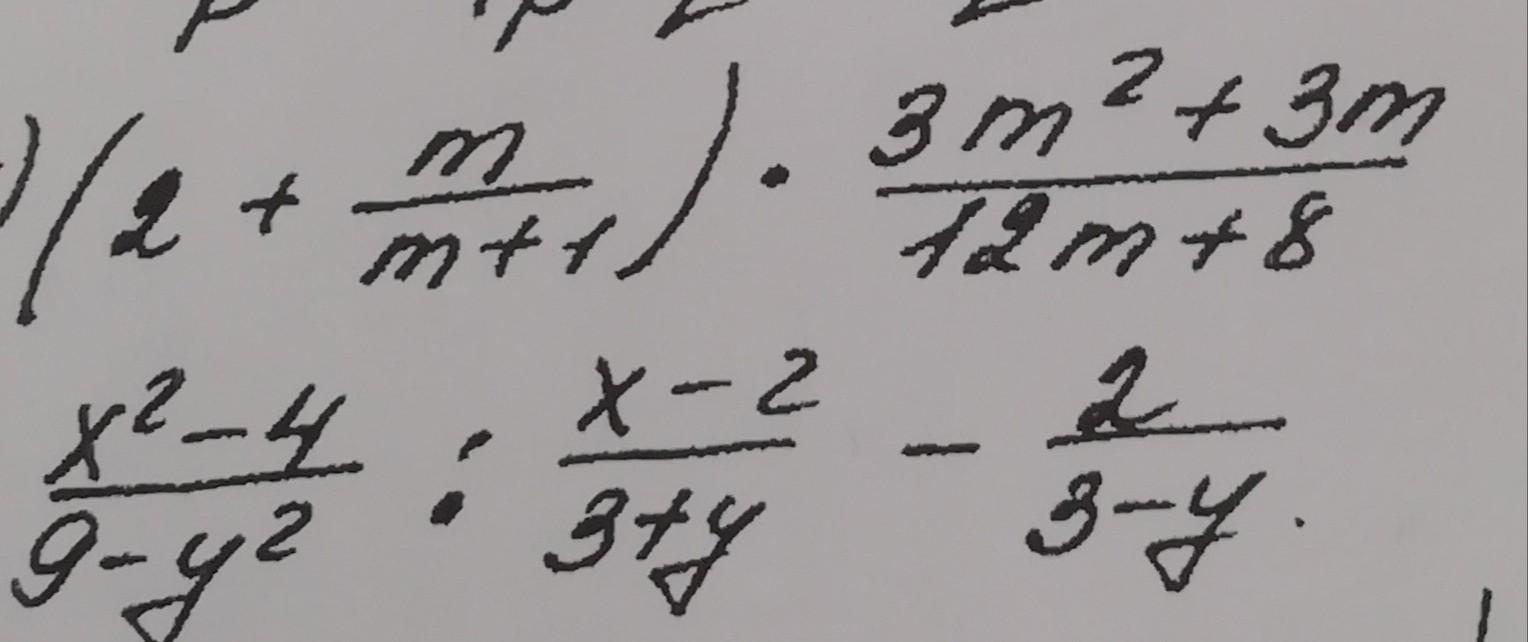 ) (2 + m/(m+1)) · (3m² + 3m)/(12m + 8)
(x² - 4)/(9 - y²) : (x - 2)/(3 + y) - 2/(3 - y).